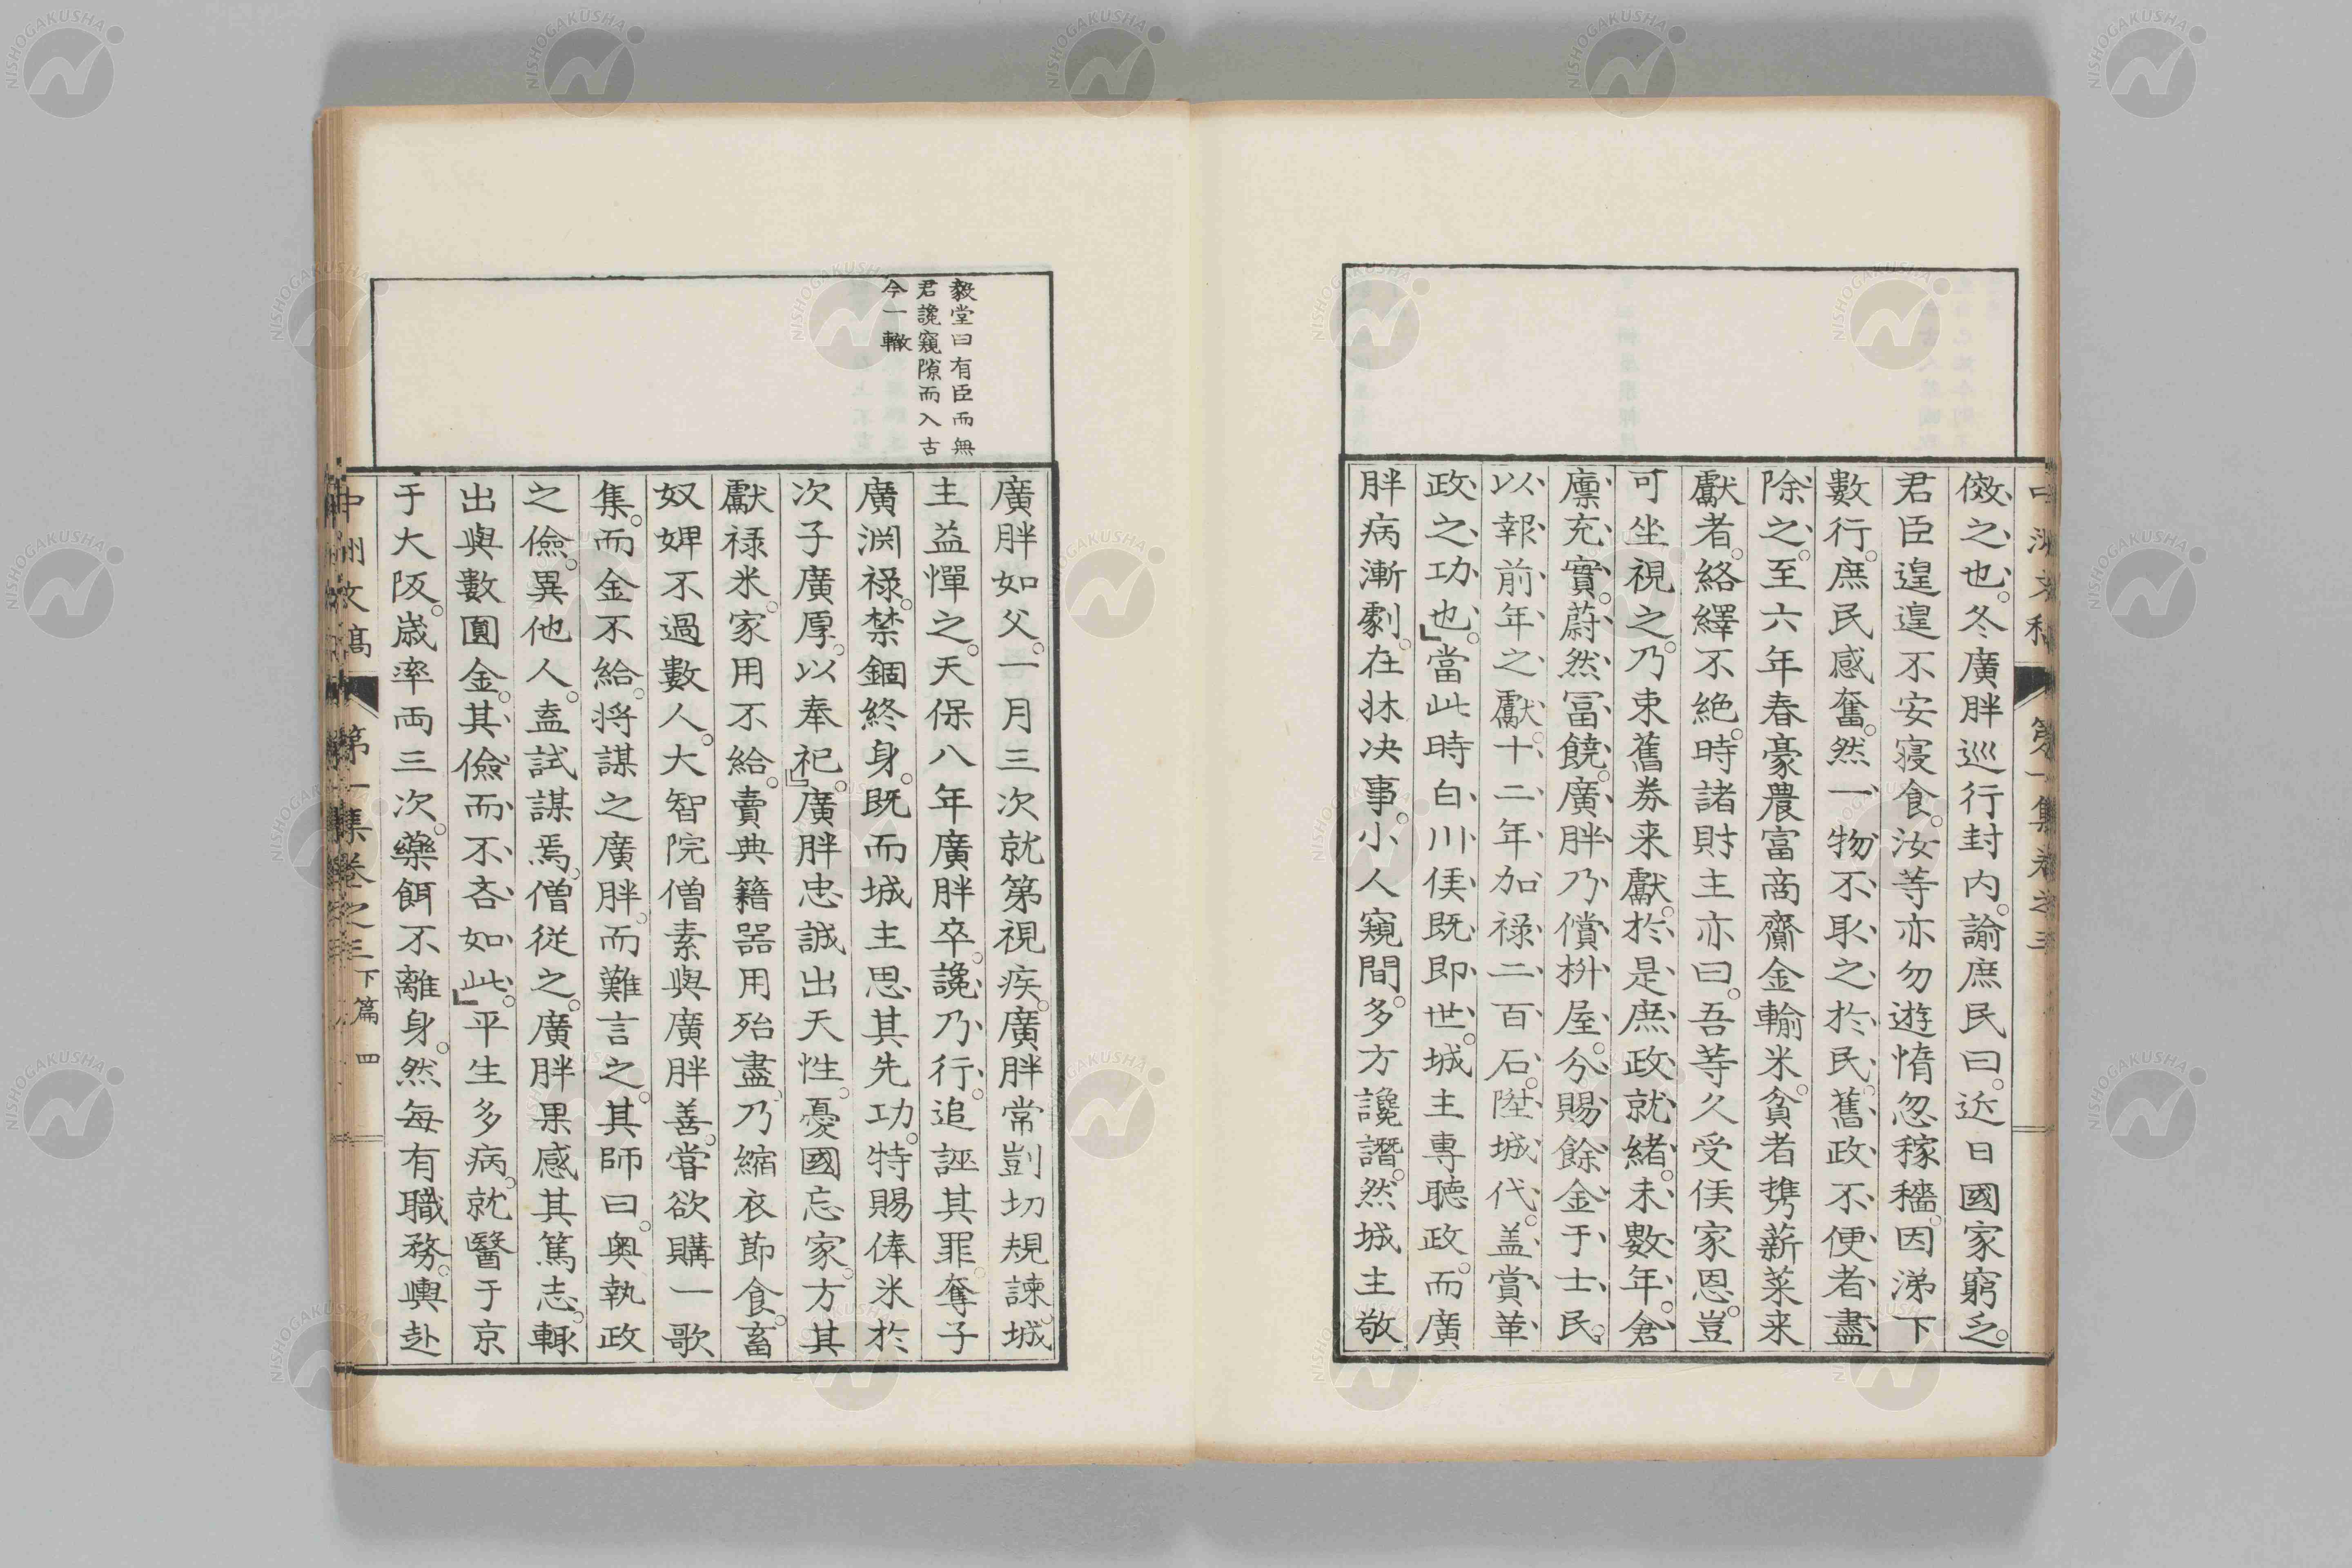 倣之也。冬廣胖巡行封内。諭庶民曰。近日國家窮乏。
君臣遑遑不安寝食。汝等亦勿遊惰忽稼穡。因涕下
數行。庶民感奮。然一物不取之於民。舊政不便者盡
除之。至六年春豪農富商齎金輸米。貧者携薪菜来
獻者。絡繹不絶。時諸財主亦曰。吾等久受侯家恩。豈
可坐視之。乃束舊券来獻。於是庶政就緒。未數年。倉
廪充實。蔚然冨饒。廣胖乃償枡屋。分賜餘金于士民。
以報前年之獻。十二年加禄二百石。陞城代。盖賞革
政之功也。」當此時白川侯既即世。城主專聴政。而廣
胖病漸劇。在牀决事。小人窺間。多方讒譖。然城主敬
廣胖如父。一月三次就第視疾。廣胖常剴切規諫。城
主益憚之。天保八年廣胖卒。讒乃行。追誣其罪。奪子
廣渕禄。禁錮終身。既而城主思其先功。特賜俸米於
次子廣厚。以奉祀。」廣胖忠誠出天性。憂國忘家。方其
獻禄米。家用不給。賣典籍噐用殆盡。乃縮衣節食。畜
奴婢不過數人。大智院僧素與廣胖善。嘗欲購一歌
集。而金不給。将謀之廣胖。而難言之。其師曰。奥執政
之儉。異他人。盍試謀焉。僧従之。廣胖果感其篤志。輙
出與數圓金。其儉而不吝如此。」平生多病。就醫于京
于大阪。歳率両三次。藥餌不離身。然毎有職務。輿赴
毅堂曰有臣而無
君讒窺隙而入古
今一轍
中洲文稿
第一集卷之三下篇 四